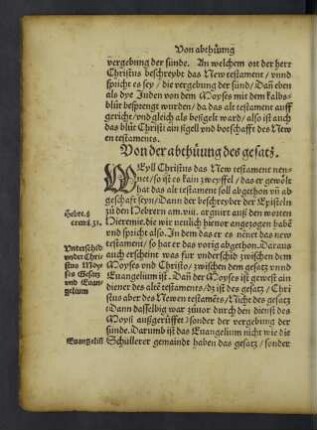 Von abthüung
vergebung der sünde. An welchem ort der herr
Christus beschreybt das New testament / vnnd
spricht es sey / die vergebung der sünd / Dañ eben
als dye Juden von dem Moyses mit dem kalbs-
blůt besprengt wurden / da das alt testament auff
gericht / vnd gleich als besigelt ward / also ist auch
das blůt Christi ain sigell vnd botschafft des New
en testaments.
Von der abthüung des gesatz.
WEyll Christus das New testament nen-
net / so ist es kain zweyffel / das er gewölt
hat das alt testament soll abgethon vñ ab
geschafft seyn / Dann der beschreyber der Episteln
zů den Hebreern am viij. arguiert auß den worten
Hieremie, die wir neulich hienor angezogen habē
vnd spricht also. In dem das er es neuet das new
testament / so hat er das vorig abgethon. Daraus
auch erscheint was für vnderschid zwischen dem
Moyses vnd Christo / zwischen dem gesatz vnnd
Euangelium ist. Dañ der Moyses ist gewest ain
diener des altē testamēts / dz ist des gesatz / Chri
stus aber des Newen testamēts / Nicht des gesatz
Dann dasselbig war zůuor durch den dienst des
Moysi außgerüfft / sonder der vergebung der
sünde. Darumb ist das Euangelium nicht wie die
Schůllerer gemaindt haben das gesatz / sonder
Hebre. 8
Vnderschid
vnder Chri
stus Moy-
ses Gesetz
vnd Euan-
gelium
Euangeliū